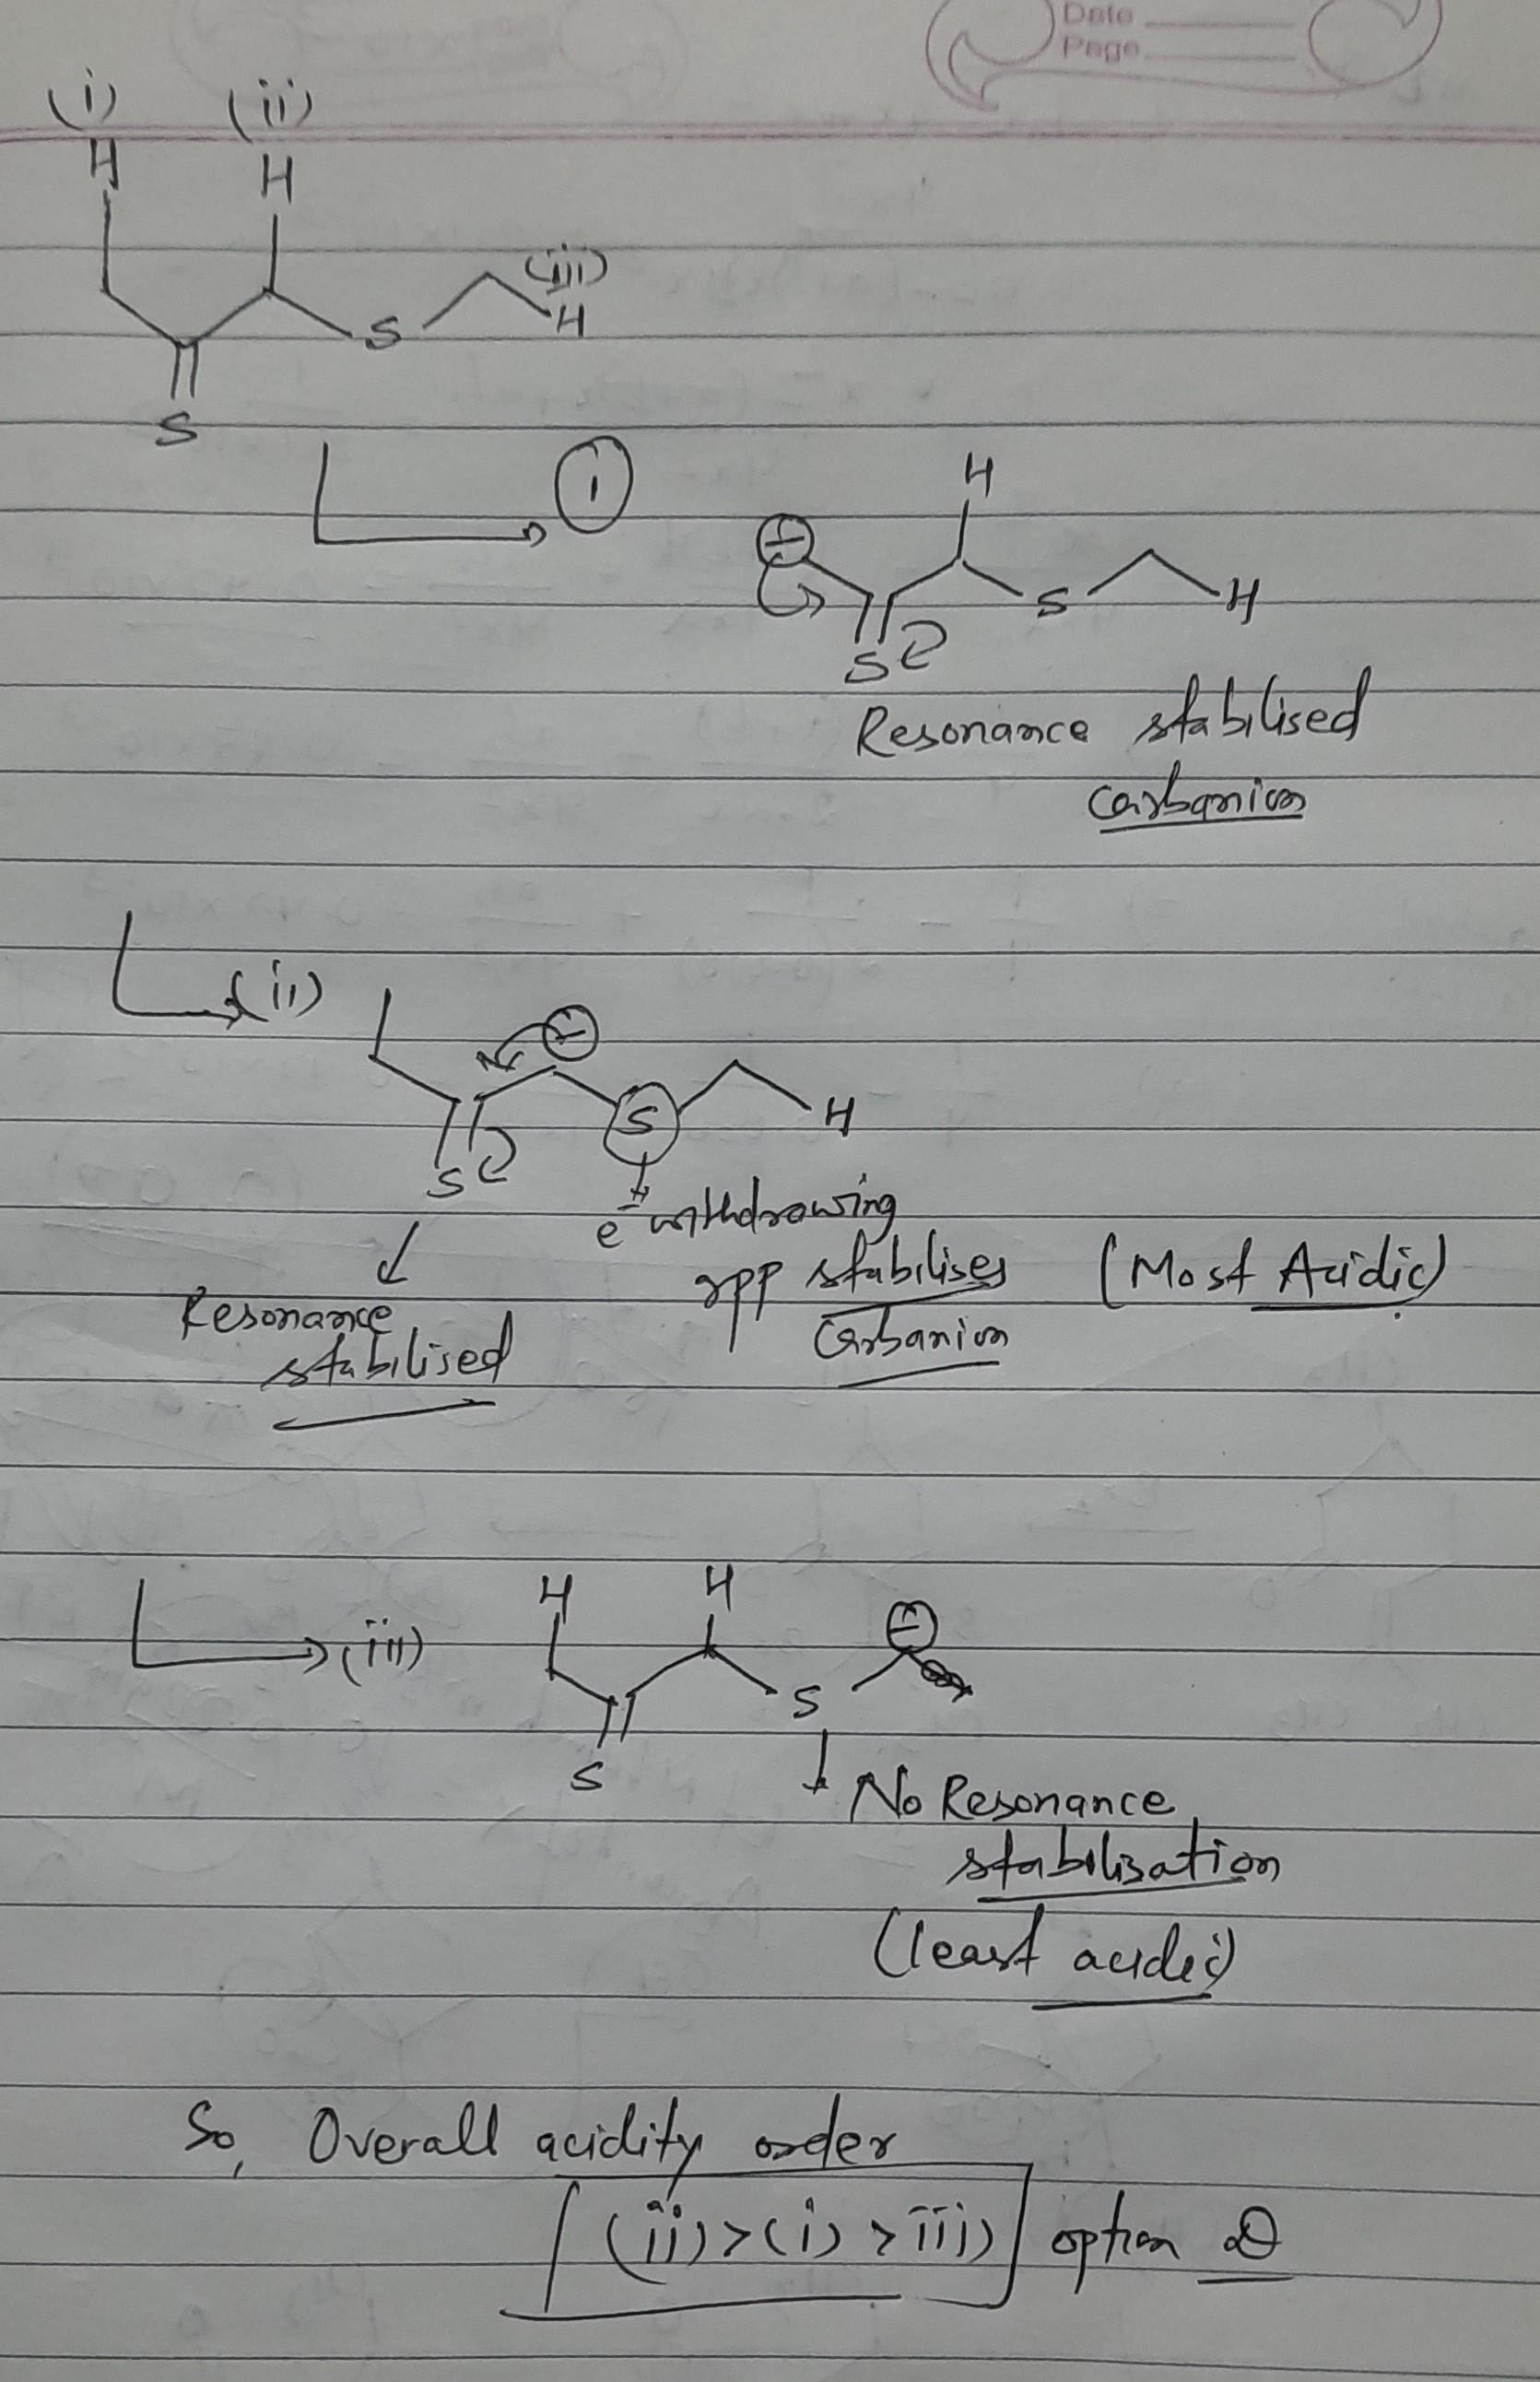 Date
Page
(i) (ii)
H H
(iii)
S H
S
1
H
⊖
S H
S
Resonance stabilised
carbanion
(ii)
⊖
S H
S
e⁻ withdrawing
gpp stabilises (Most Acidic)
Carbanion
Resonance
stabilised
(iii)
H H ⊖
S
S
No Resonance
stabilisation
(least acidic)
So, Overall acidity order
(ii)>(i)>iii) option D